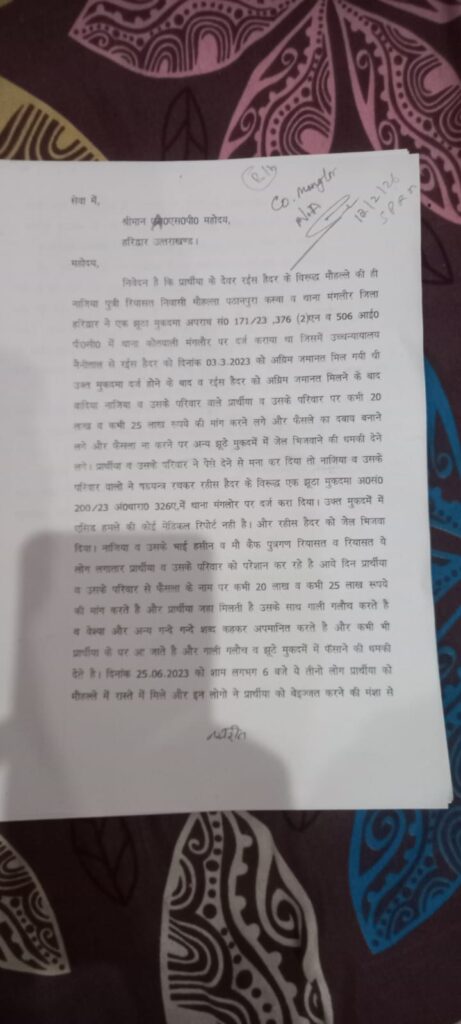 R/b
Co. Manglor
N/A
12/2/26
S P R D
सेवा में,
श्रीमान एस0एस0पी0 महोदय,
हरिद्वार उत्तराखण्ड।
महोदय,
निवेदन है कि प्रार्थीया के देवर रईस हैदर के विरूद्ध मौहल्ले की ही
नाजिया पुत्री रियासत निवासी मौहल्ला पठानपुरा कस्बा व थाना मंगलौर जिला
हरिद्वार ने एक झूठा मुकदमा अपराध सं0 171/23 ,376 (2)एन व 506 आई0
पी0सी0 में थाना कोतवाली मंगलौर पर दर्ज कराया था जिसमें उच्चन्यायालय
नैनीताल से रईस हैदर को दिनांक 03.3.2023 को अग्रिम जमानत मिल गयी थी
उक्त मुकदमा दर्ज होने के बाद व रईस हैदर को अग्रिम जमानत मिलने के बाद
वादिया नाजिया व उसके परिवार वाले प्रार्थीया व उसके परिवार पर कभी 20
लाख व कभी 25 लाख रूपये की मांग करने लगे और फैसले का दबाव बनाने
लगे और फैसला ना करने पर अन्य झूठे मुकदमें में जेल भिजवाने की धमकी देने
लगे। प्रार्थीया व उसके परिवार ने पैसे देने से मना कर दिया तो नाजिया व उसके
परिवार वालो ने षडयन्त्र रचकर रहीस हैदर के विरूद्ध एक झूठा मुकदमा अ0सं0
200/23 अं0धारा0 326ए,में थाना मंगलोर पर दर्ज करा दिया। उक्त मुकदमें में
एसिड हमले की कोई मेडिकल रिपोर्ट नही है। और रहीस हैदर को जेल भिजवा
दिया। नाजिया व उसके भाई हसीन व मौ कैफ पुत्रगण रियासत व रियासत ये
लोग लगातार प्रार्थीया व उसके परिवार को परेशान कर रहे है आये दिन प्रार्थीया
व उसके परिवार से फैसला के नाम पर कभी 20 लाख व कभी 25 लाख रूपये
की मांग करते है और प्रार्थीया जहा मिलती है उसके साथ गाली गलौच करते है
व वेश्या और अन्य गन्दे गन्दे शब्द कहकर अपमानित करते है और कभी भी
प्रार्थीया के घर आ जाते है और गाली गलौच व झूठे मुकदमें में फॅसाने की धमकी
देते है। दिनांक 25.06.2023 को शाम लगभग 6 बजे ये तीनो लोग प्रार्थीया को
मौहल्ले में रास्ते में मिले और इन लोगो ने प्रार्थीया को बेइज्जत करने की मंशा से